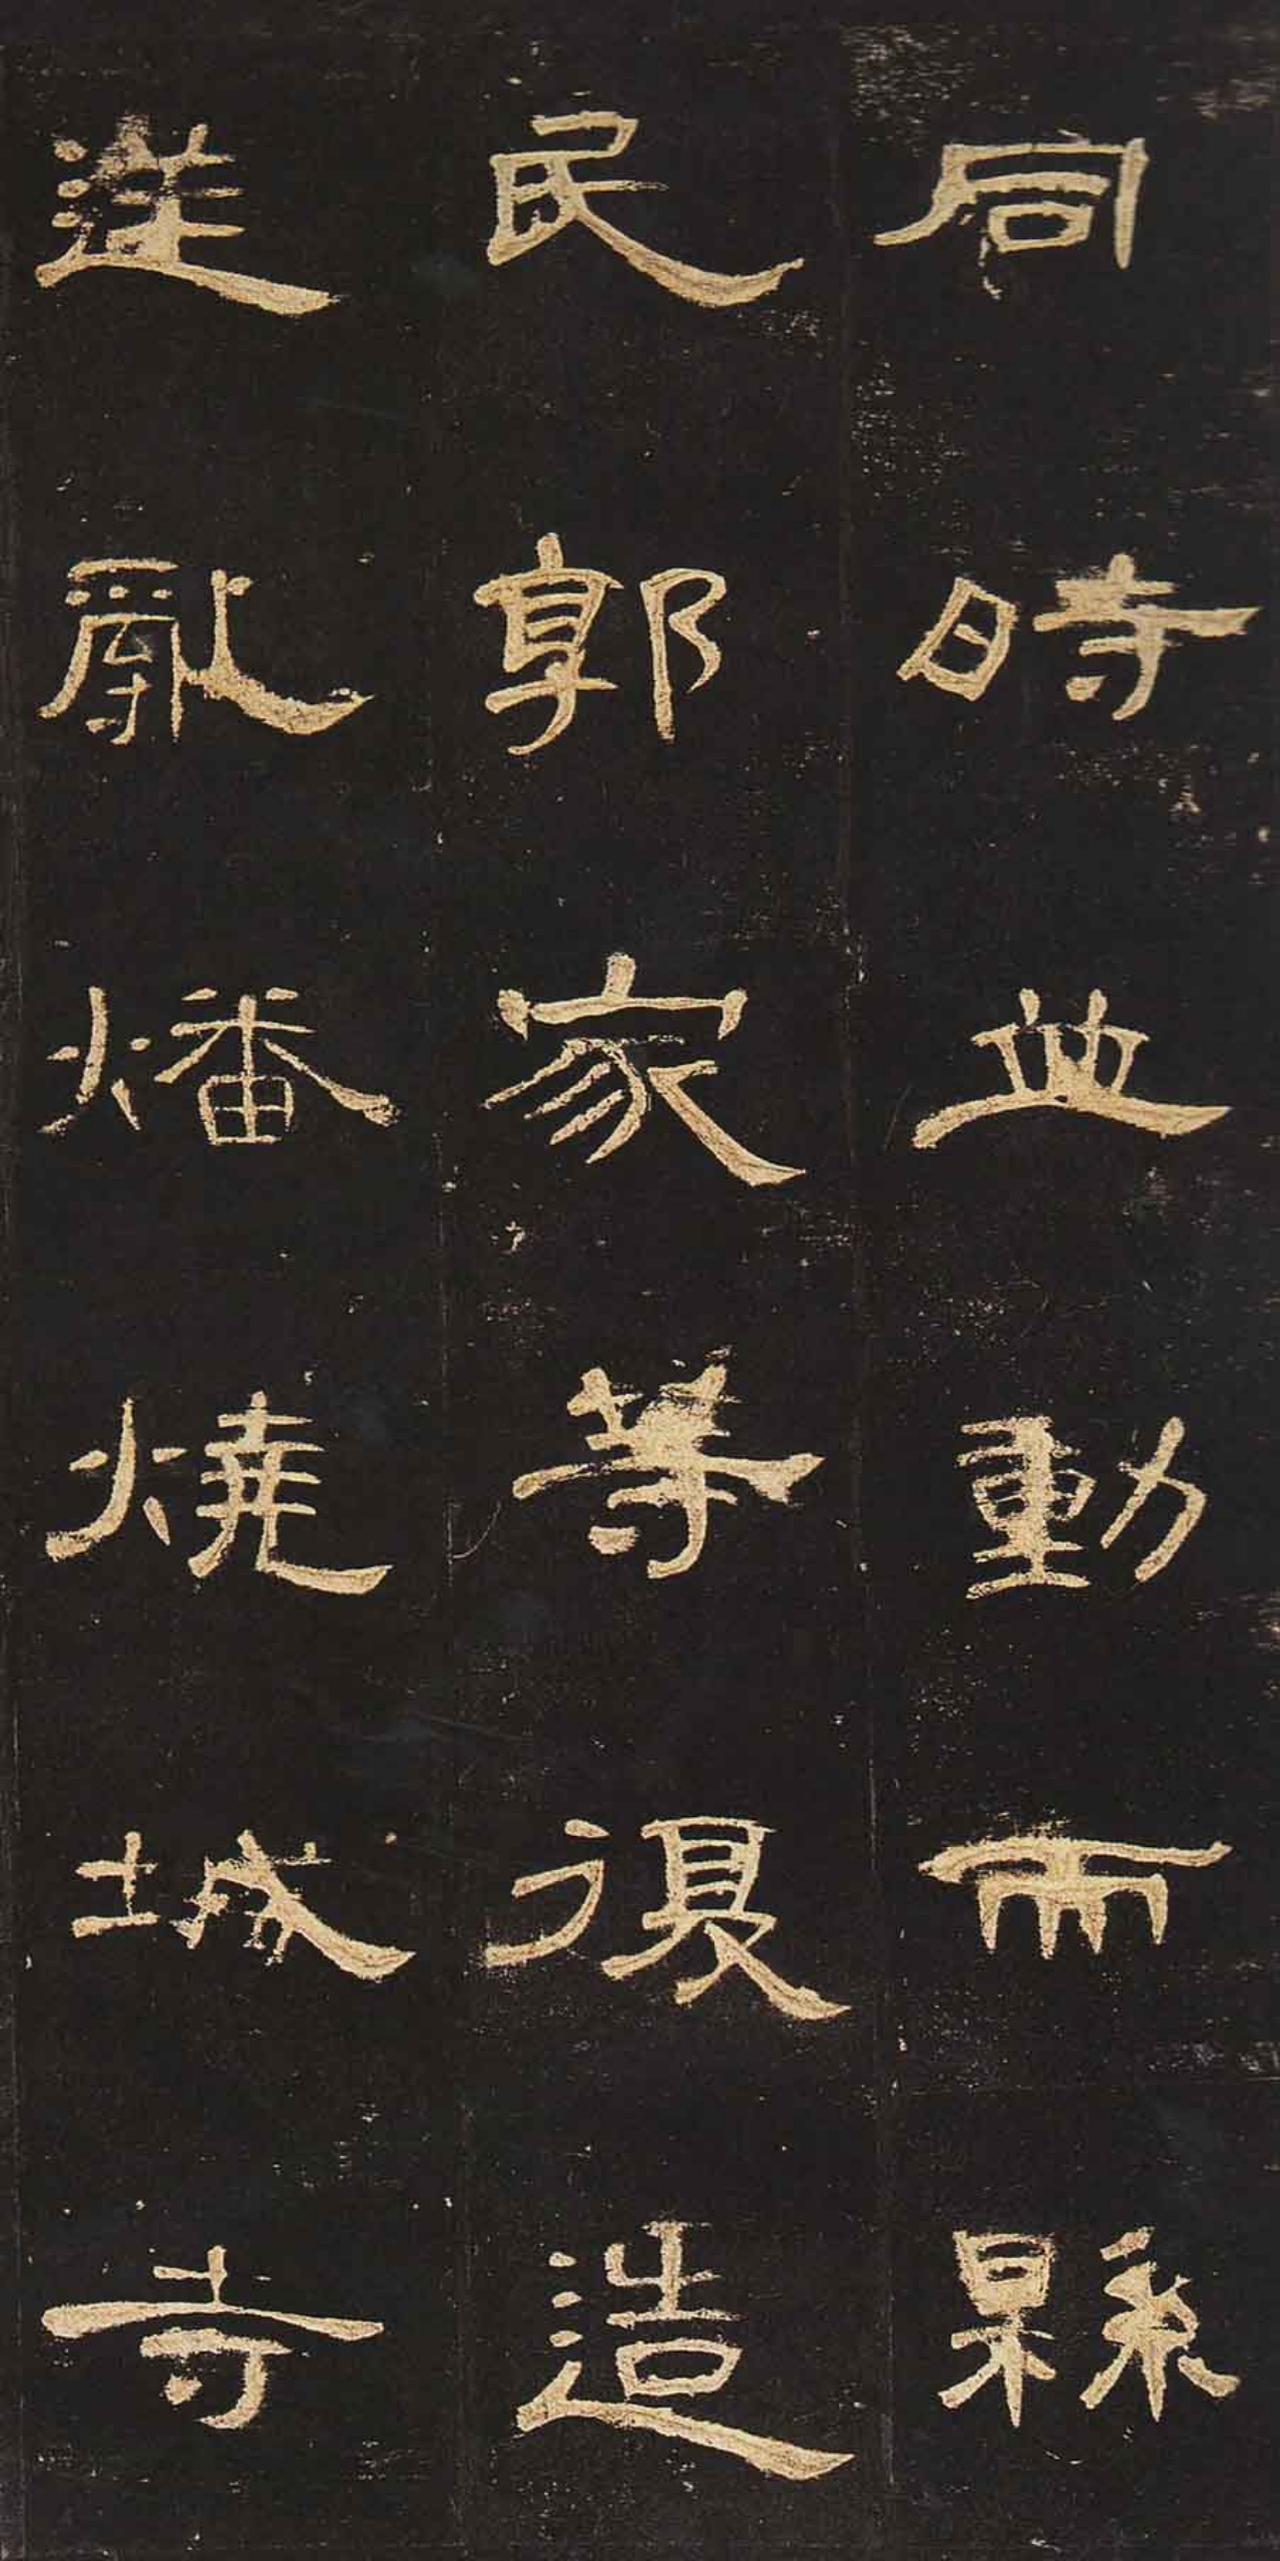 同時並動而縣
民郭家等復造
逆亂燔燒城寺